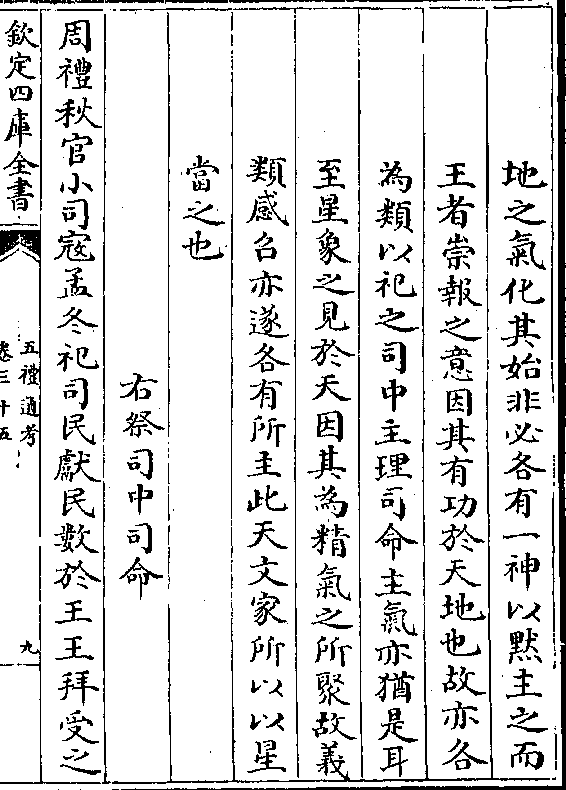 地之氣化其始非必各有一神以黙主之而
王者崇報之意因其有功於天地也故亦各
為類以祀之司中主理司命主氣亦猶是耳
至星象之見於天因其為精氣之所聚故義
類感召亦遂各有所主此天文家所以以星
當之也
右祭司中司命
周禮秋官小司寇孟冬祀司民獻民數於王王拜受之
欽定四庫全書
五禮通考
卷三十五
九